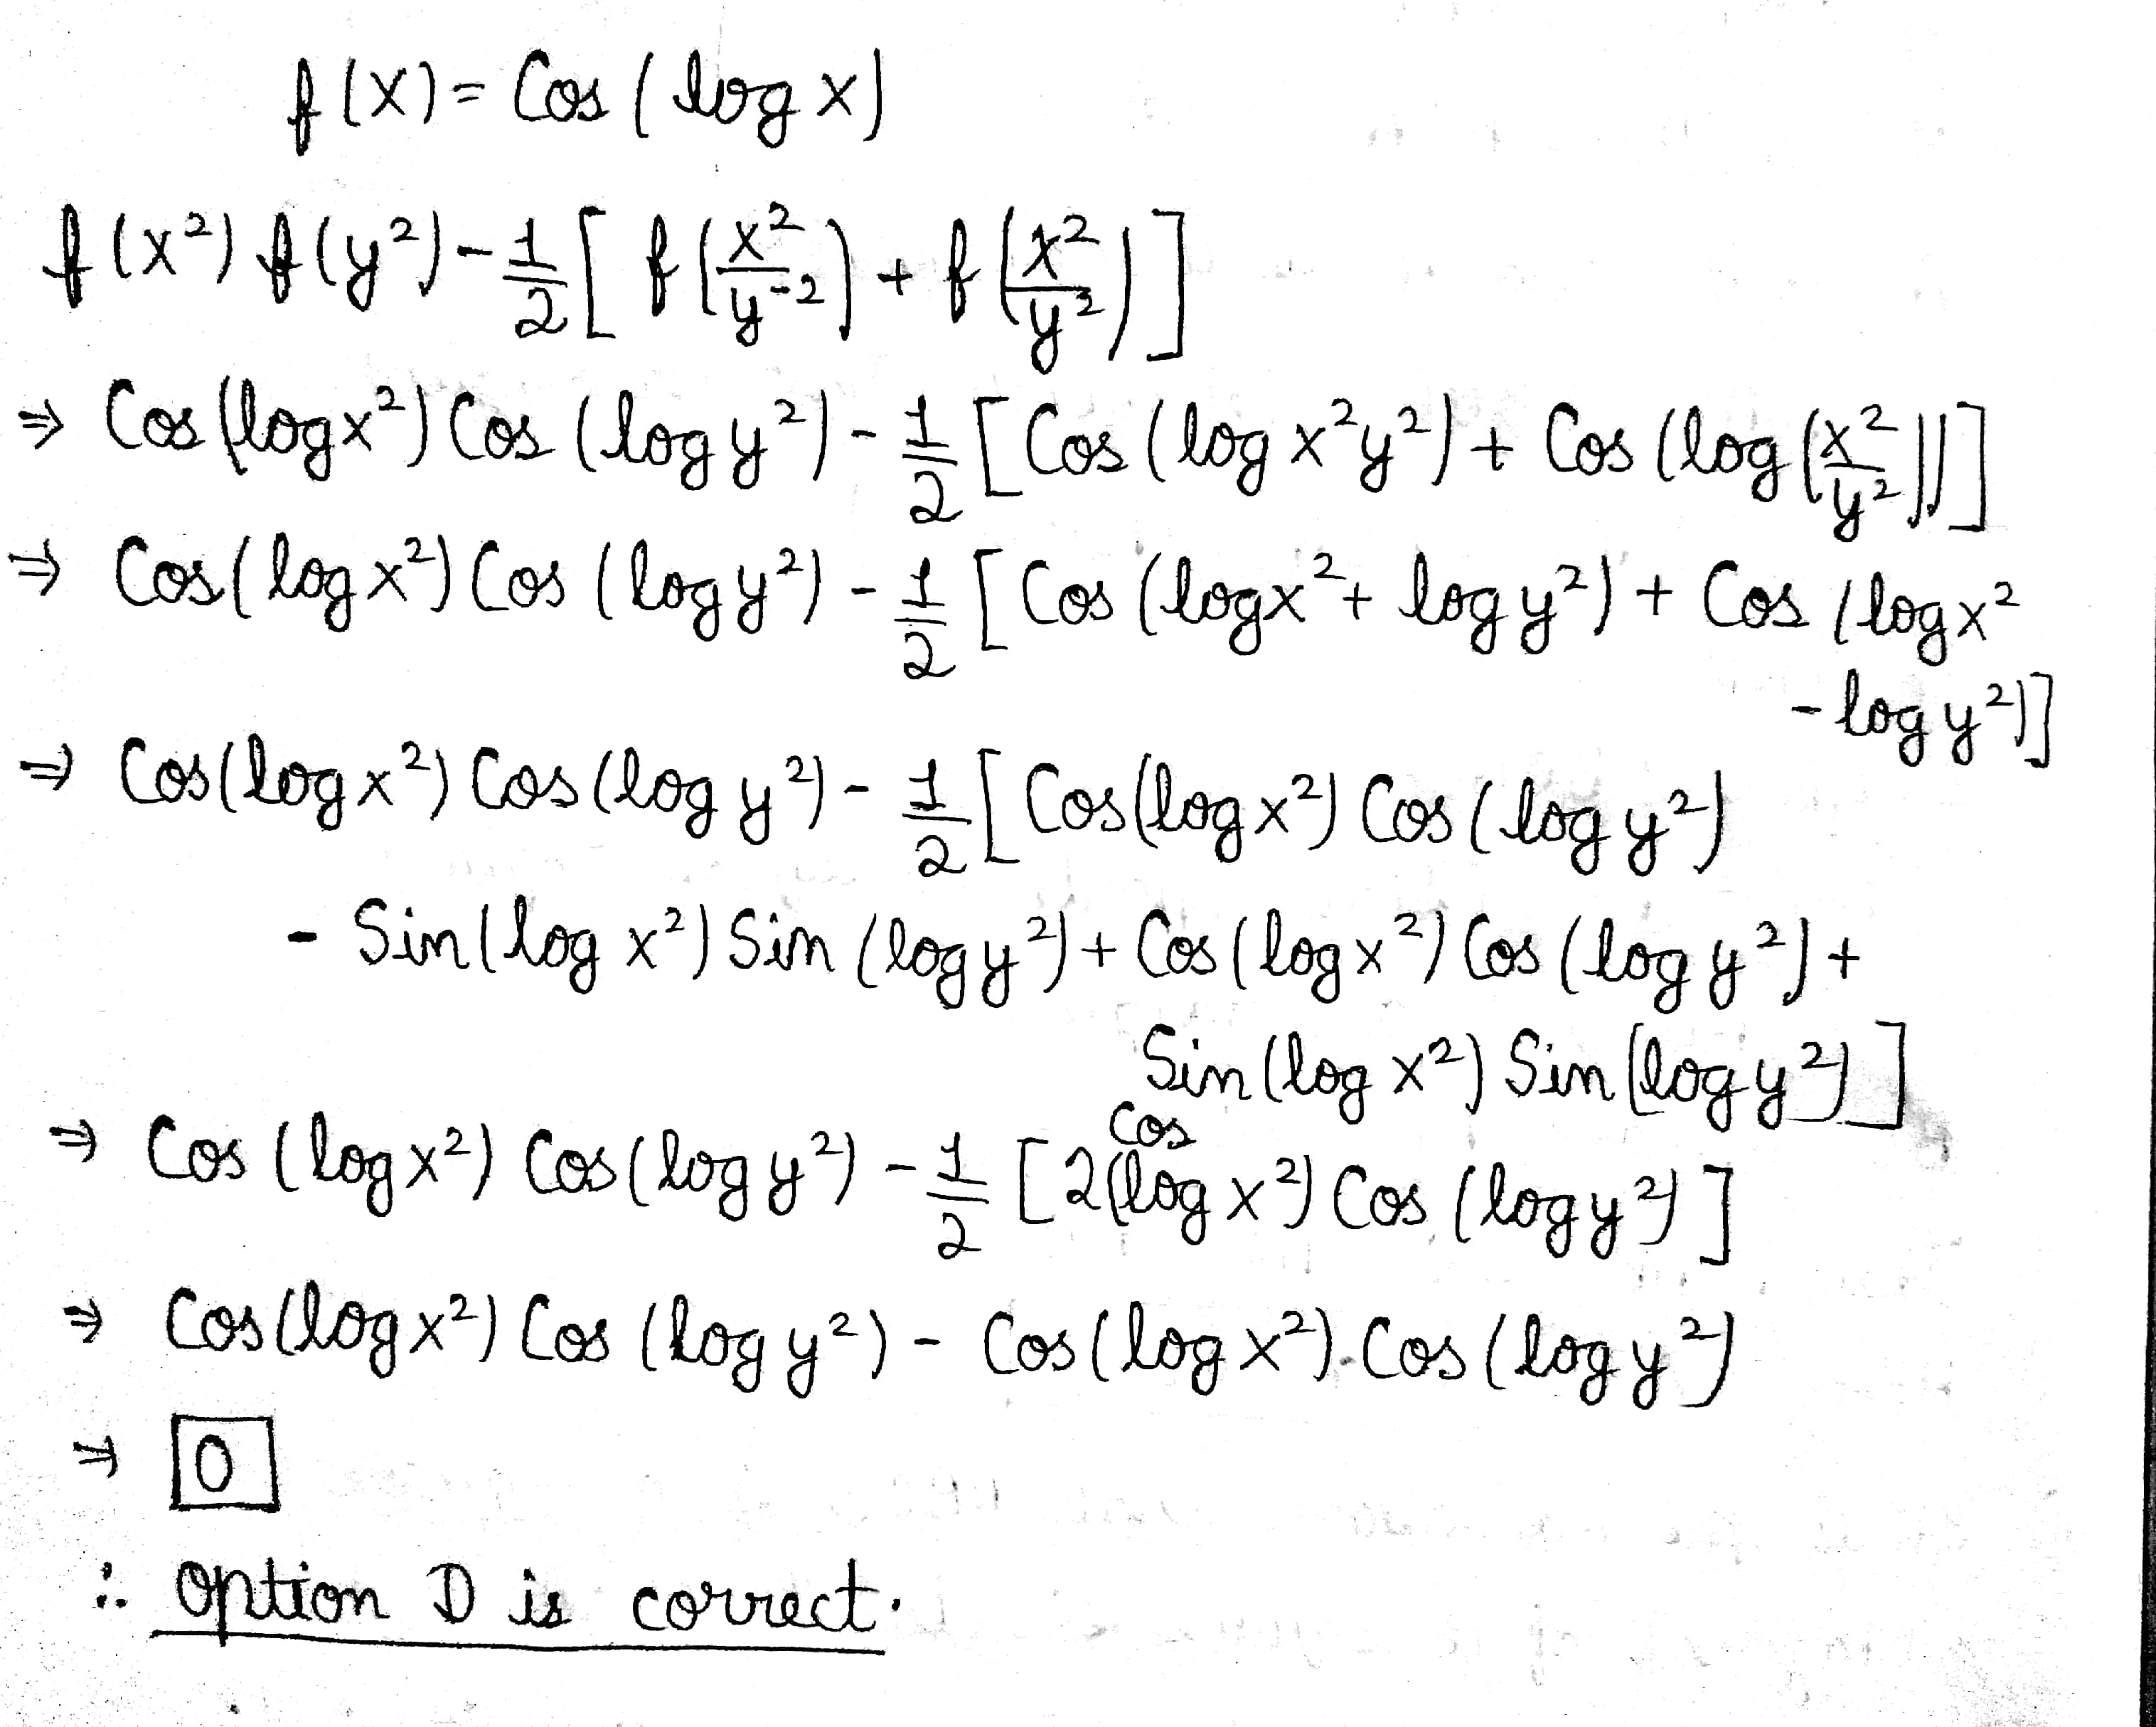 f(x) = Cos (log x)
f(x²) f(y²) - 1/2 [ f(x²/y⁻²) + f(x²/y²) ]
⇒ Cos (log x²) Cos (log y²) - 1/2 [Cos (log x²y²) + Cos (log (x²/y²))]
⇒ Cos (log x²) Cos (log y²) - 1/2 [Cos (log x² + log y²) + Cos (log x²
- log y²)]
⇒ Cos (log x²) Cos (log y²) - 1/2 [Cos (log x²) Cos (log y²)
- Sin (log x²) Sin (log y²) + Cos (log x²) Cos (log y²) +
Sin (log x²) Sin (log y²)]
⇒ Cos (log x²) Cos (log y²) - 1/2 [2 cos (log x²) Cos (log y²)]
⇒ Cos (log x²) Cos (log y²) - Cos (log x²). Cos (log y²)
⇒ 0
∴ option D is correct.